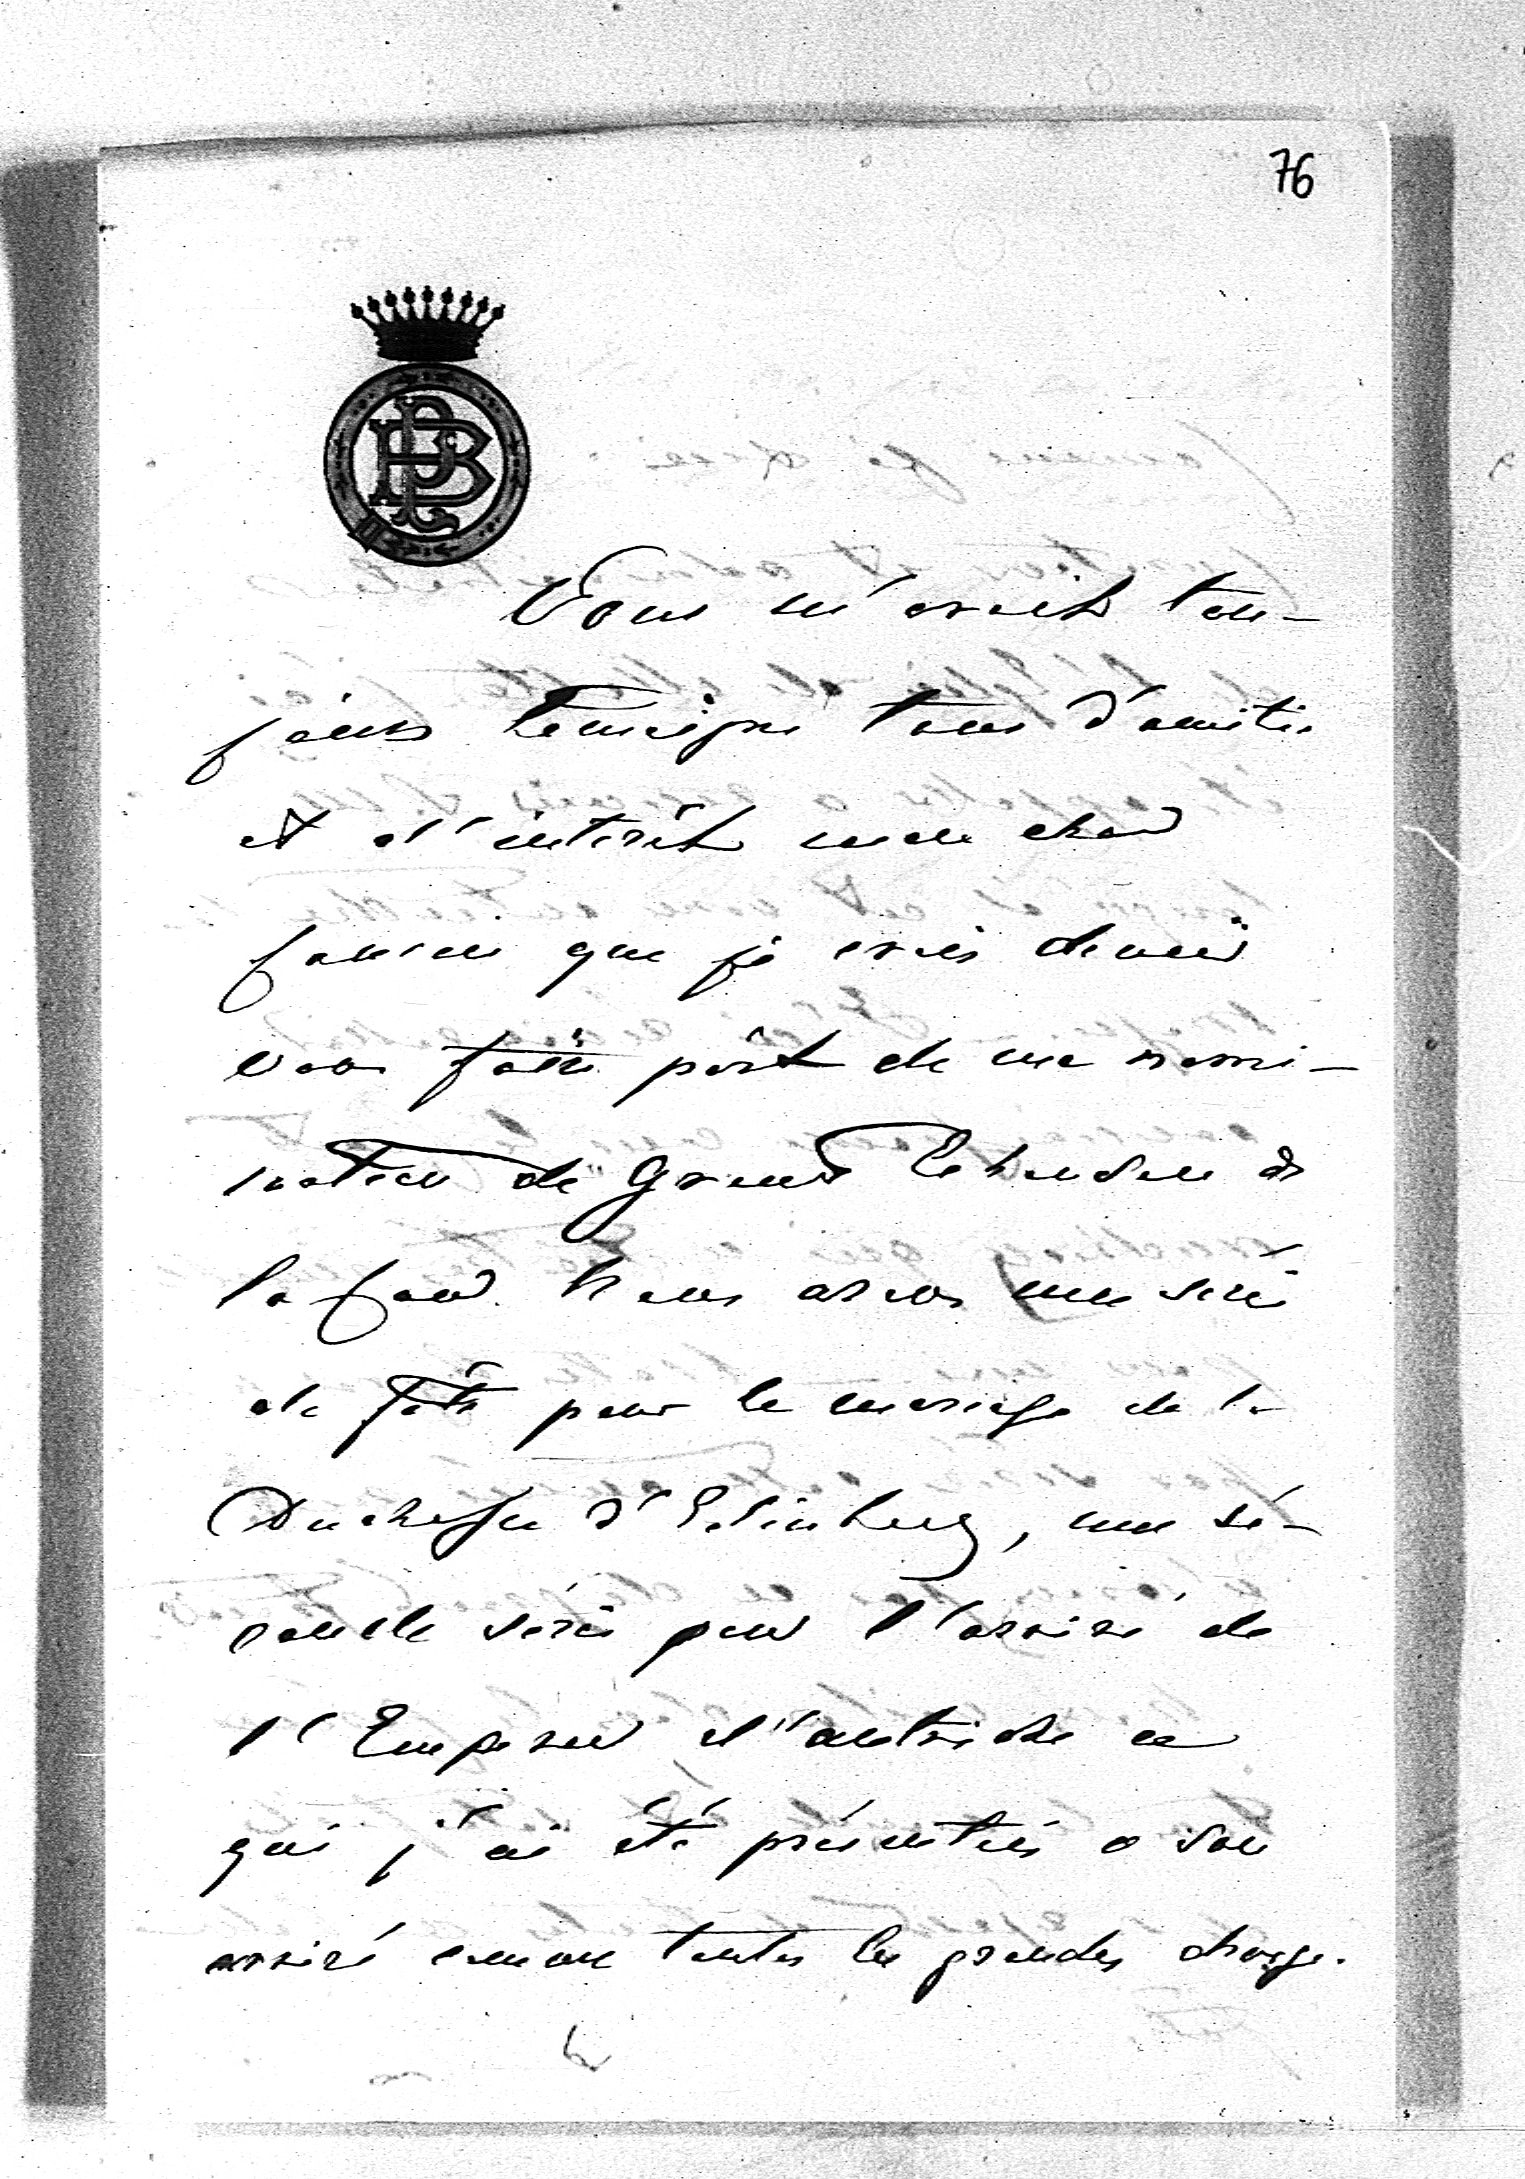 76
BPL
Vous m'avez tou-
jours temoigné tant d'amitié
et d'intérêt mon cher
cousin que je crois devoir
vous faire part de ma nomi-
nation de Grand Echanson de
la Cour. Nous avons une série
de fête pour le mariage de la
Duchesse d'Edinburg, une se-
conde série pour l'arrivé de
l'Empereur d'Autriche a
qui j'ai été présentés a son
arrivé comme toutes les grandes charges.